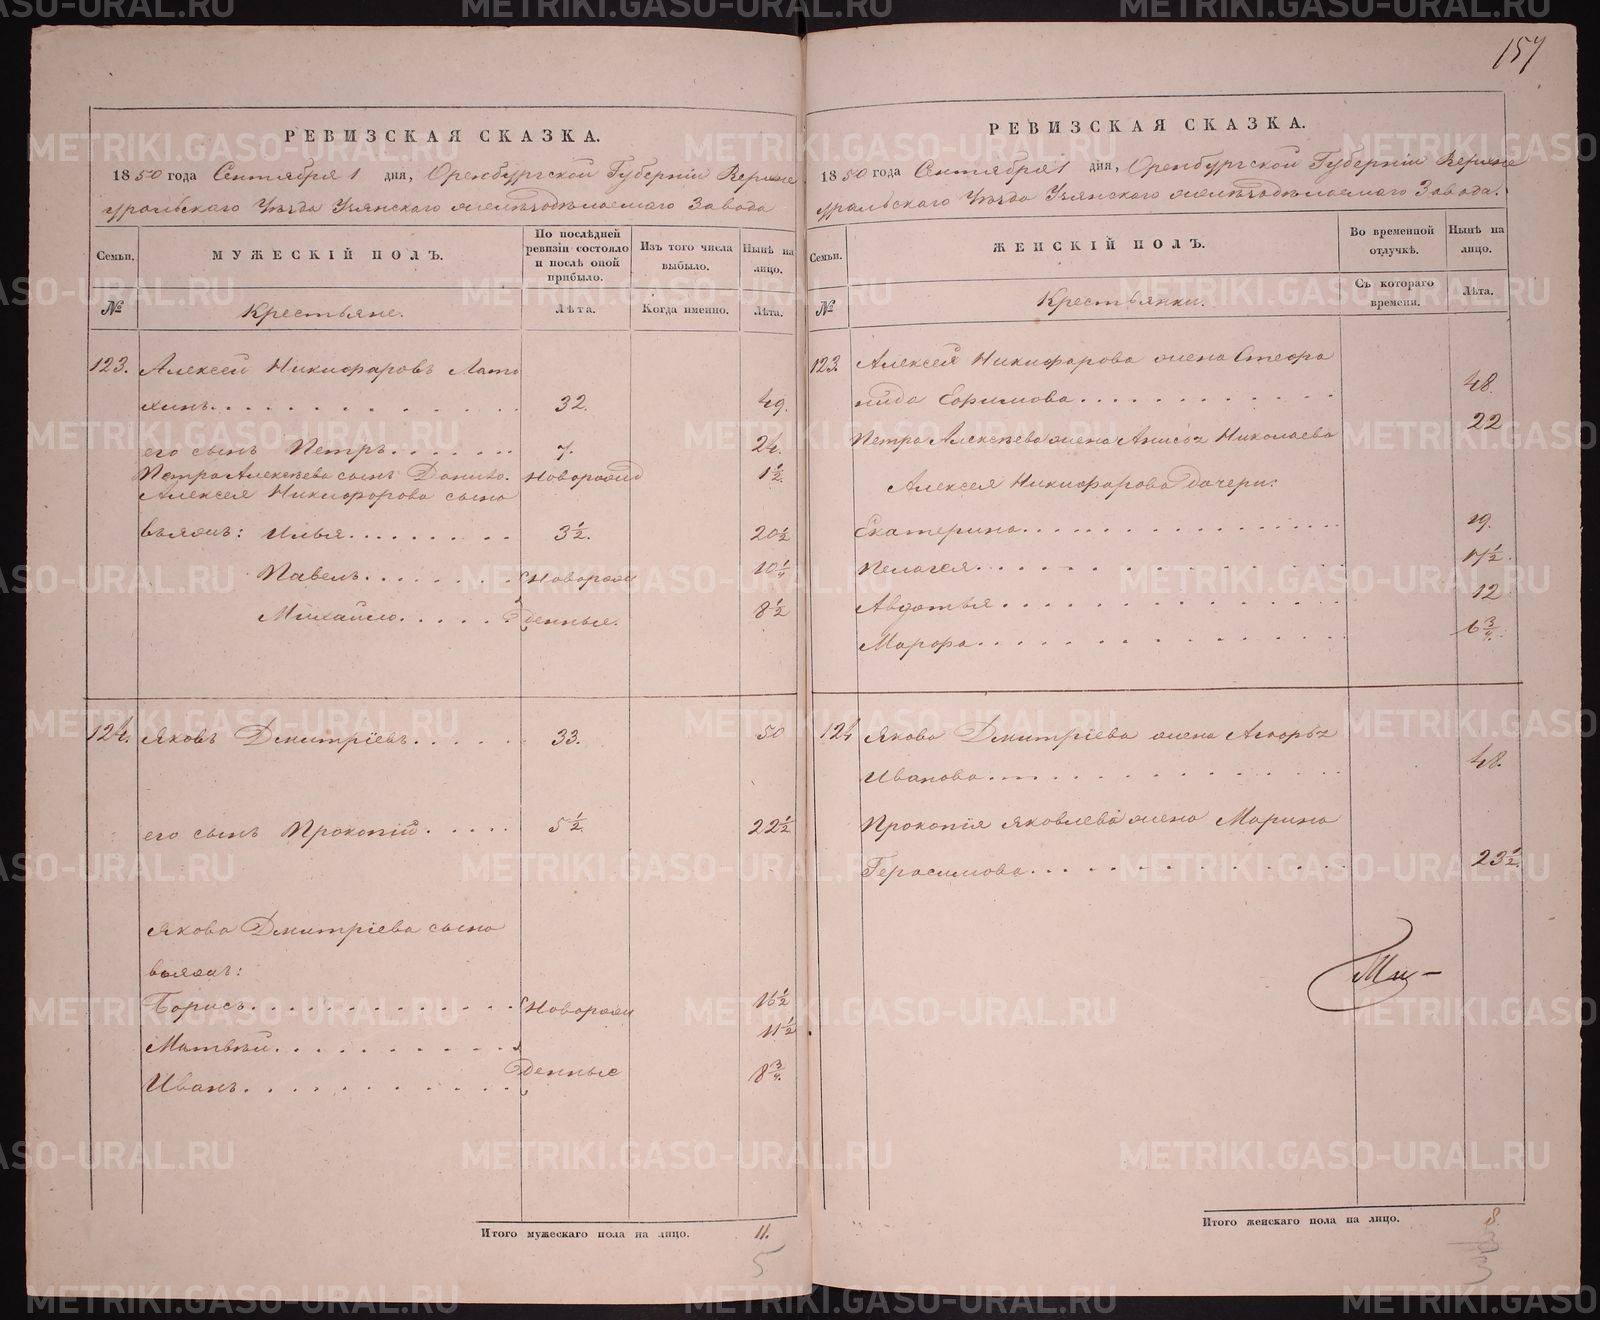 157
РЕВИЗСКАЯ СКАЗКА.
1850 года Сентября 1 дня, Оренбургской Губерніи Верхне
уральскаго Уѣзда Узянскаго желѣзодѣлаемаго Завода
Семьи.
МУЖЕСКІЙ ПОЛЪ.
По послѣдней ревизіи состояло и послѣ оной прибыло.
Изъ того числа выбыло.
Нынѣ на лицо.
№
Крестьяне.
Лѣта.
Когда именно.
Лѣта.
123. Алексей Никифаровъ Лато
хинъ. 32. 49.
его сынъ Петръ. 7. 24.
Петра Алексѣева сынъ Данило. Новорожд 1½.
Алексея Никифорова сыно
вьяхъ: Илья. 3½. 20½
Павелъ. Новорож 10¼
Михайло. денные. 8½
124. Яковъ Дмитріевъ. 33. 50
его сынъ Прокопій. 5½. 22½
Якова Дмитріева сыно
вьяхъ:
Борисъ. Новорож 16½
Матвѣй. 11½
Иванъ. денные 8¾.
Итого мужескаго пола на лицо. 11.
5
РЕВИЗСКАЯ СКАЗКА.
1850 года Сентября 1 дня, Оренбургской Губерніи Верхне
уральскаго Уѣзда Узянскаго желѣзодѣлаемаго Завода.
Семьи.
ЖЕНСКІЙ ПОЛЪ.
Во временной отлучкѣ.
Нынѣ на лицо.
№
Крестьянки.
Съ котораго времени.
Лѣта.
123. Алексея Никифарова жена Стефа
нида Ефимова. 48.
Петра Алексѣева жена Анисья Николаева 22
Алексея Никифарова дочери:
Екатерина. 19.
Пелагея. 17½.
Авдотья. 12
Марфа. 6¾.
124 Якова Дмитріева жена
Иванова. 48.
Прокопія Яковлева жена Марина
Герасимова. 23½.
Итого женскаго пола на лицо. 8.
METRIKI.GASO-URAL.RU